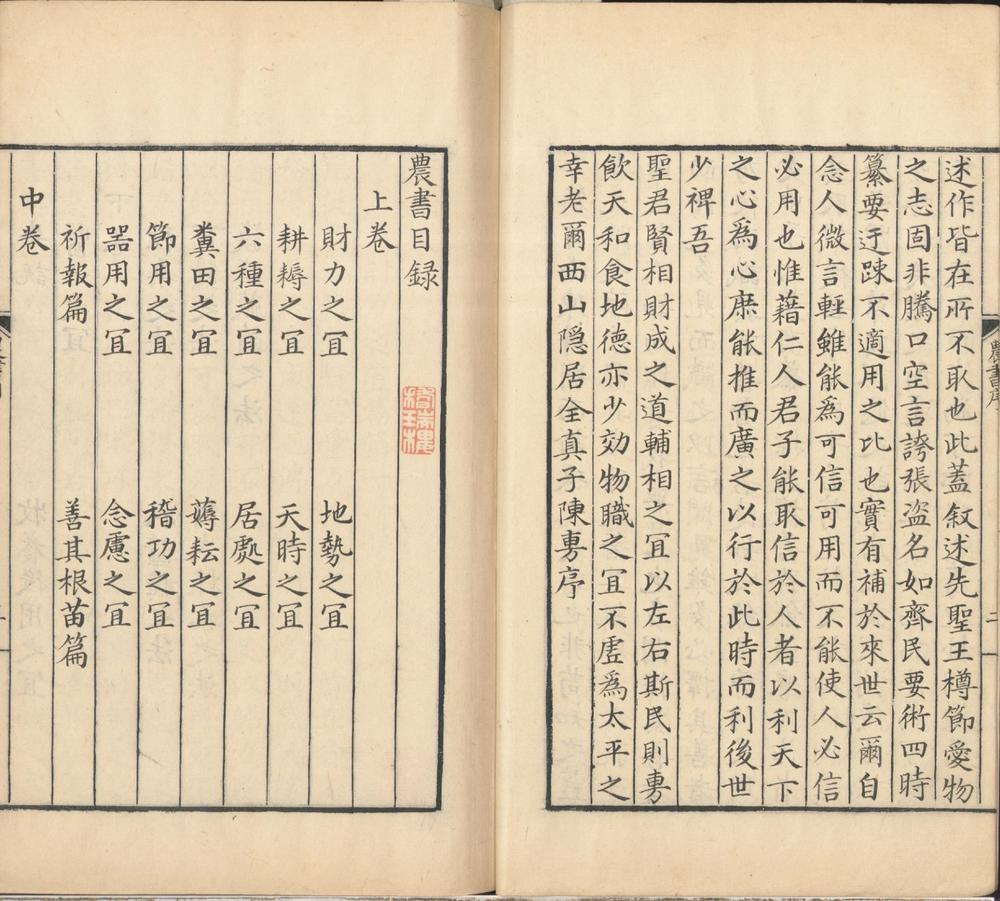 述作皆在所不取也此蓋叙述先聖王樽節愛物
之志固非騰口空言誇張盗名如齊民要術四時
纂要迂踈不適用之比也實有補於來世云爾自
念人微言輕雖能爲可信可用而不能使人必信
必用也惟藉仁人君子能取信於人者以利天下
之心爲心庶能推而廣之以行於此時而利後世
少裨吾
聖君賢相財成之道輔相之冝以左右斯民則旉
飲天和食地德亦少効物職之冝不虛爲太平之
幸老爾西山隠居全真子陳旉序
農書序
二
農書目録
上卷
財力之冝 地勢之冝
耕耨之冝 天時之冝
六種之冝 居處之冝
糞田之冝 薅耘之冝
節用之冝 稽功之冝
器用之冝 念慮之冝
祈報篇 善其根苗篇
中卷